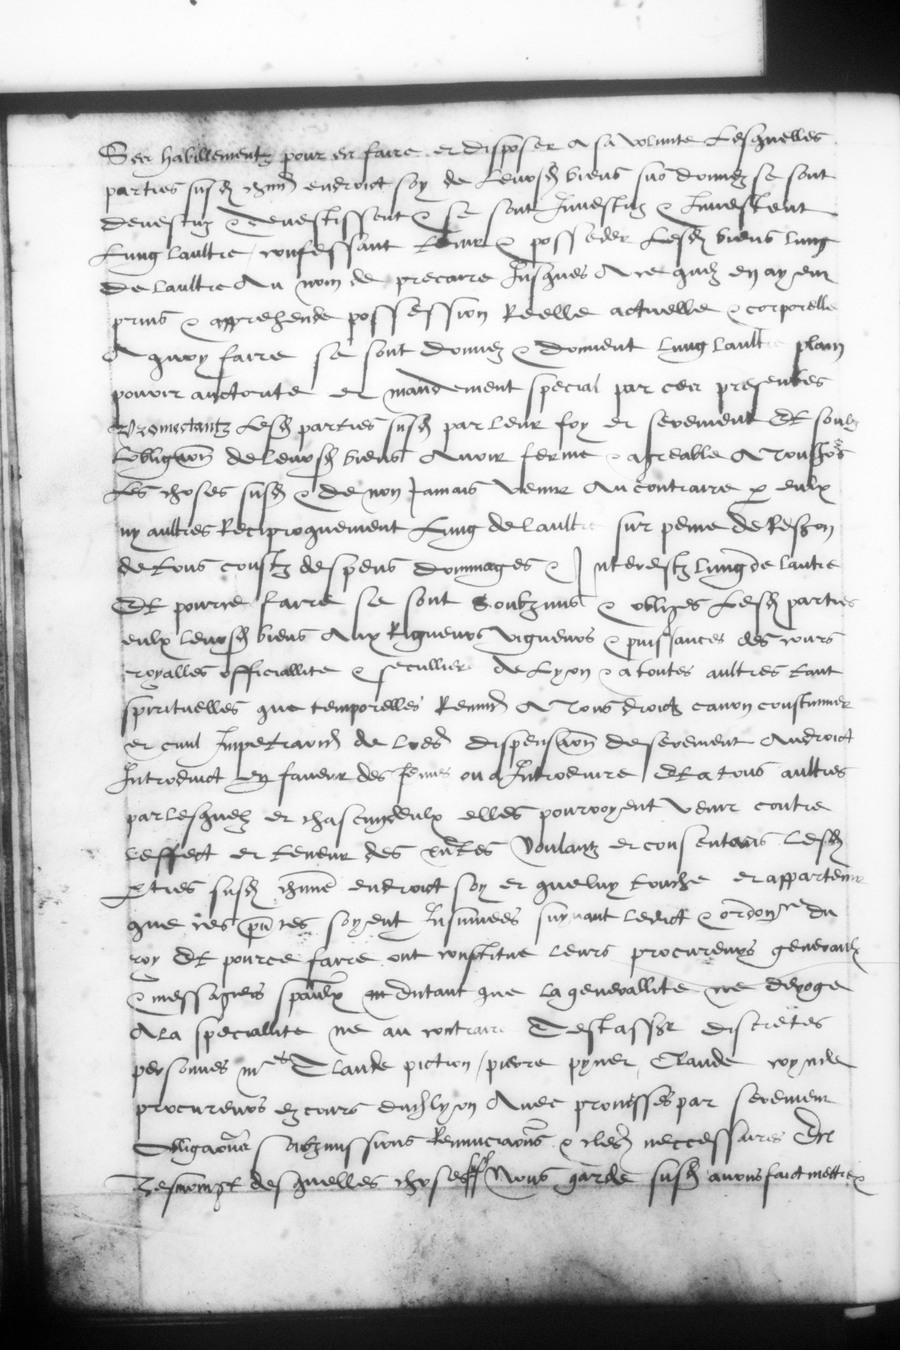 Ses habillementz pour en faire et disposer a sa volunte Lesquelles
parties susd chun endroict soy de leursd biens sus donnez se sont
devestuz & devestissent & se sont Investuz & Investent
Lung laultre / confessant tenir & posseder Lesd biens lung
de laultre Au nom de precaire Jusques Ace quilz en ayent
prins & apprehende possession Reelle actuelle & corporelle
A quoy faire se sont donnez & donnent lung laultre plain
pouvoir auctorite et mandement special par ces presentes
Promectantz Lesd parties susd par leur foy et serement Et soubz
Lobligaon de leursd biens Avoir ferme & agreable A tousjours
Les choses susd & de non Jamais venir Au contraire p eulx
ny aultres Reciproquement Lung de laultre sur peine de Reffon
de tous coustz despens dommages & Interestz lung de lautre
Et pource faire se sont soubzmis & obliges Lesd parties
eulx leursd biens Aux Rigueurs vigueurs & puissances des cours
royalles officiallite & seculliere de Lyon & a toutes aultres tant
spirituelles que temporelles Renun A tous droictz canon coustumier
et civil Impetraon de lres dispensaon de serement Au droict
Introduict en faveur des femes ou a Introduire Et a tous aultres
par lesquelz et chascun deulx elles pourroyent venir contre
leffect et teneur des pntes Voulantz et consentans lesd
pties susd chune endroict soy et que luy touche et appartient
que ces pntes soyent Insinuees suyvant ledict & ordonnce du
roy Et pource faire ont constitue leurs procureurs generaulx
& messagiers spaulx nn dutant que la generallite ne deroge
A la speciallite ne au contraire discretes
personnes mes Claude piction / pierre pyner Claude
procureurs ez cours dud lyon Avec promesses par serement
obligaons soubzmissions Renunciaons & clers neccessaires En
Tesmoingt desquelles choses Nous garde susd avons faict mettre